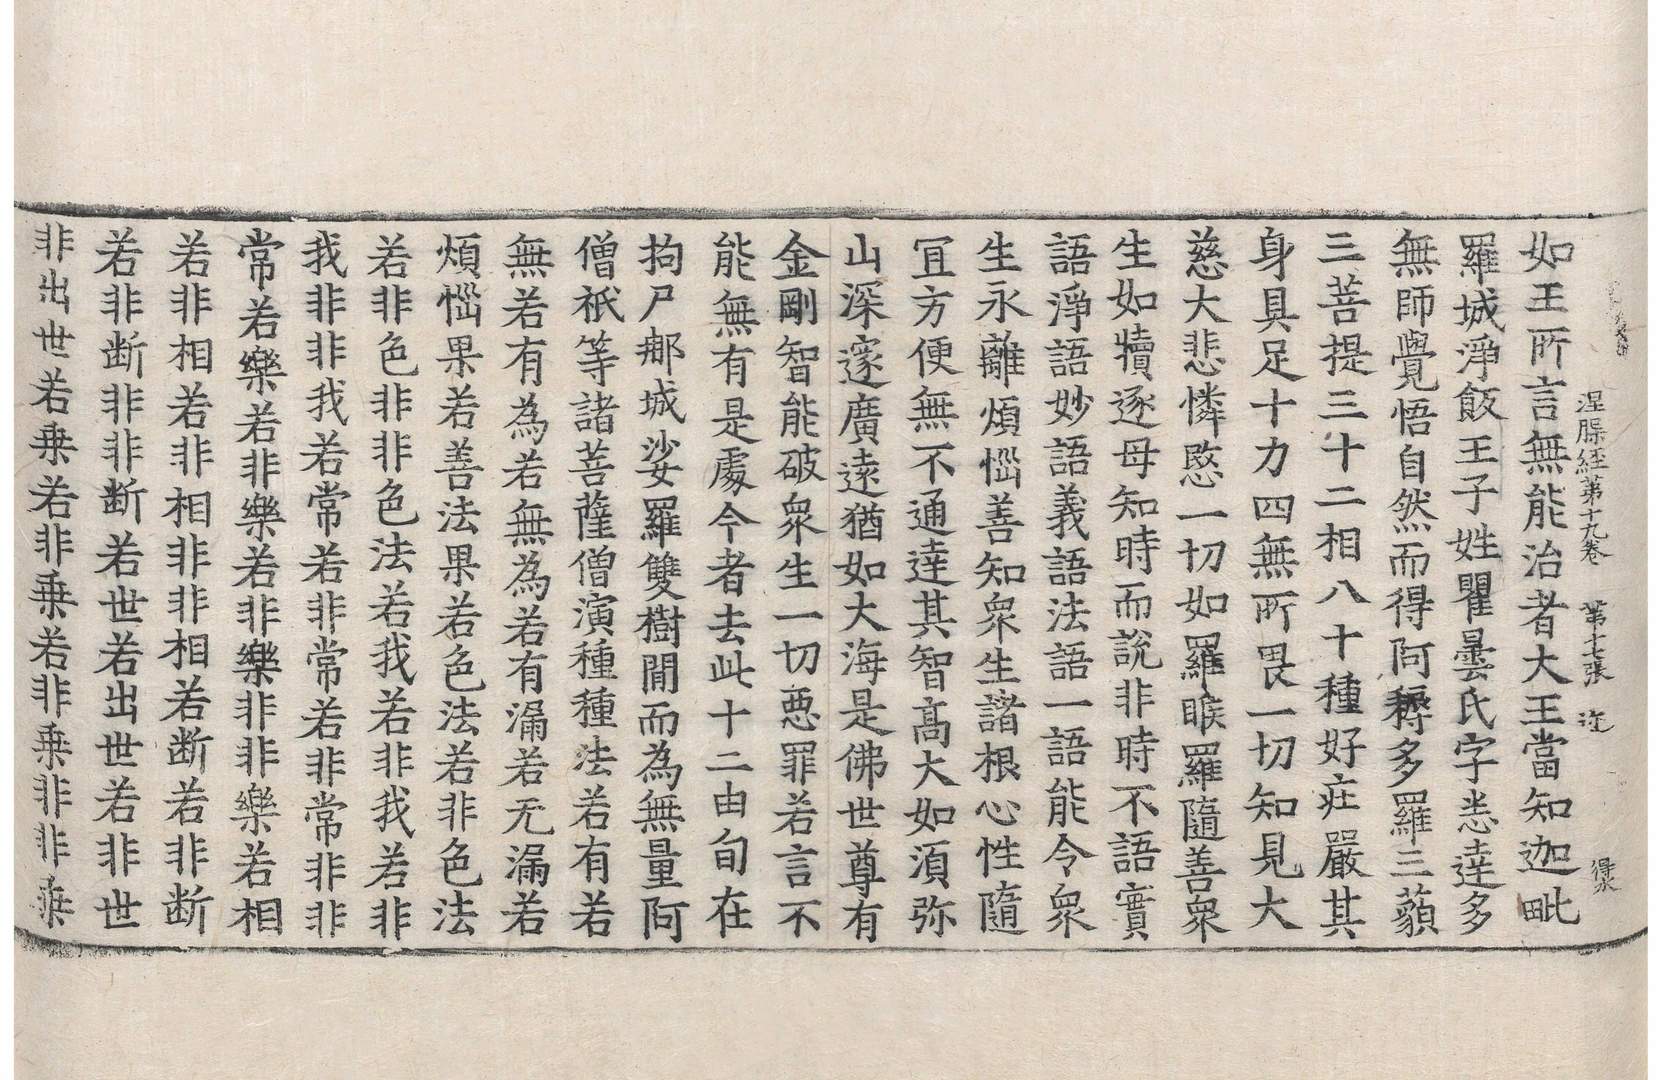 涅槃經第十九卷 第七張 迬 得永
如王所言無能治者大王當知迦毗
羅城淨飯王子姓瞿曇氏字悉達多
無師覺悟自然而得阿耨多羅三藐
三菩提三十二相八十種好莊嚴其
身具足十力四無所畏一切知見大
慈大悲憐愍一切如羅睺羅隨善衆
生如犢逐母知時而說非時不語實
語淨語妙語義語法語一語能令衆
生永離煩惱善知衆生諸根心性隨
冝方便無不通達其智髙大如湏弥
山深邃廣遠猶如大海是佛世尊有
金剛智能破衆生一切惡罪若言不
能無有是處今者去此十二由旬在
拘尸𨙻城娑羅雙樹閒而為無量阿
僧祇等諸菩薩僧演種種法若有若
無若有為若無為若有漏若无漏若
煩惱果若善法果若色法若非色法
若非色非非色法若我若非我若非
我非非我若常若非常若非常非非
常若樂若非樂若非樂非非樂若相
若非相若非相非非相若断若非断
若非断非非断若世若出世若非世
非出世若乗若非乗若非乗非非乗